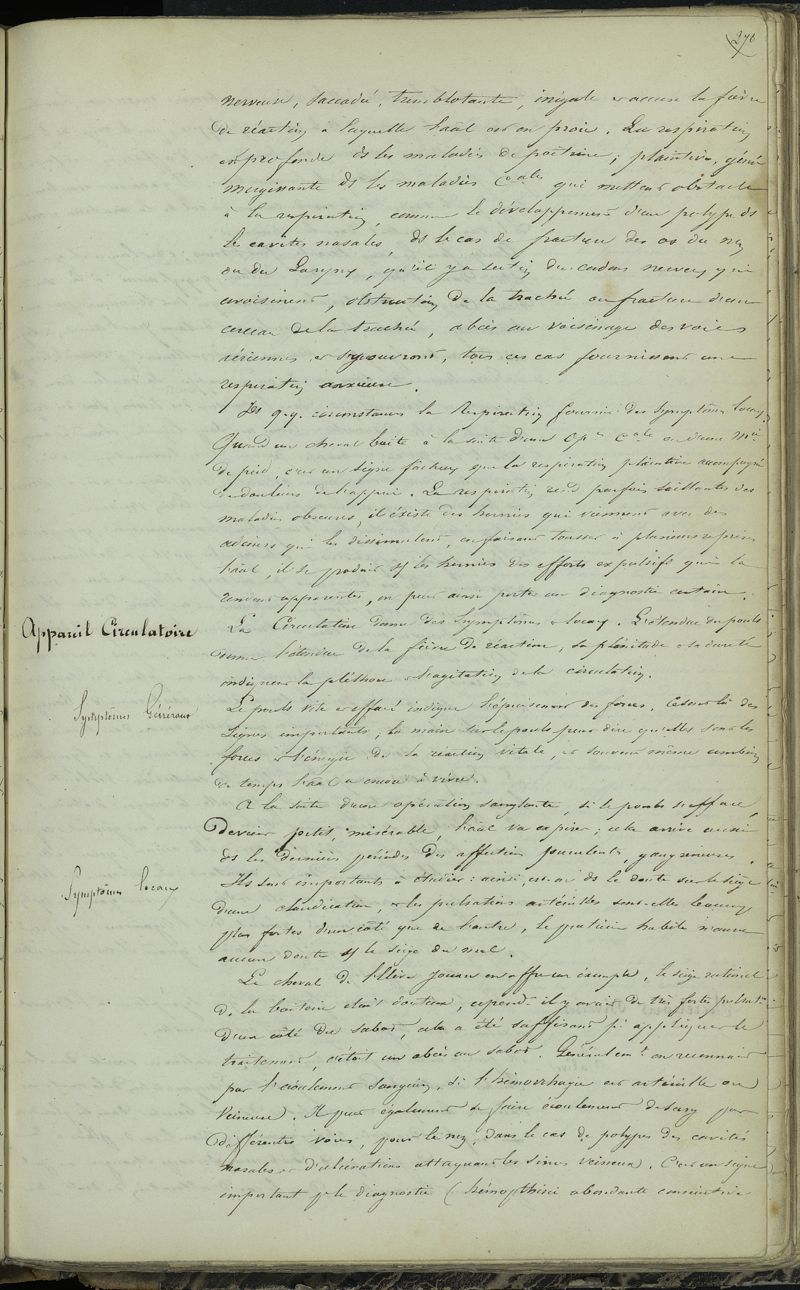 276
nerveuse, saccadée, tremblotante, inégale et accuse la fièvre
de réaction à laquelle l'aal est en proie. La respiration
est profonde ds les maladies de poitrine ; plaintive, gênée
ds les maladies Cales qui mettent obstacle
à la respiration, comme le développement d'un polype ds
les cavités nasales, ds le cas de fracture des os du nez
ou du Larynx, qu'il y a section des cordons nerveux qui
avoisinent, obstruction de la trachée ou fracture d'un
cerceau de la trachée, abcès au voisinage des voies
aériennes et s'y ouvrant, tous ces cas fournissent une
respiration anxieuse.
Ds q.q. circonstances la Respiration fournit des Symptômes locaux,
Quand un cheval boite à la suite d'une Opon Cale ou d'une Mie
de pied, c'est un signe fâcheux que la respiration plaintive accompagnée
de douleurs de l'appui. La respiration rend parfois saillantes des
maladies obscures, il existe des hernies qui viennent avec des
qui les dissimulent, en faisant tousser à plusieurs reprises
l'aal, il se produit sr les hernies des efforts expulsifs qui la
rendent apparentes, on peut ainsi porter un diagnostic certain.
Appareil Circulatoire
La Circulation donne des Symptômes locaux. L'étendue du pouls
donne l'étendue de la fièvre de réaction, sa plénitude et sa dureté
indiquent la pléthore et l'agitation de la circulation.
Symptômes Généraux
Le pouls vite et effacé indique l'épuisement des forces. Ce sont là des
signes importants, la main sur le pouls peut dire quelles sont les
forces et l'énergie de la réaction vitale, et souvent même combien
de temps l'aal a encore à vivre.
A la suite d'une opération sanglante, si le pouls s'efface,
devient petit, misérable, l'aal va expirer ; cela arrive aussi
ds les dernières périodes des affections purulentes, gangréneuses.
Symptômes locaux
Ils sont importants à étudier : ainsi, est-on ds le doute sur le siège
d'une claudication, et les pulsations artérielles sont-elles beaucoup
plus fortes d'un côté que de l'autre, le praticien habile n'aura
aucun doute sr le siège du mal.
Le cheval de l'élève Jouan en offre un exemple, le siège rationel
de la boiterie était douteux, cepend. il y avait de très fortes pulsatns
d'un côté du sabot, cela a été suffisant pr appliquer le
traitement, c'était un abcès au sabot. Généralemt on reconnaît
par l'écoulement sanguin, si l'hémorrhagie est artérielle ou
veineuse. Il peut également se faire écoulement de sang par
différentes voies, pour le nez, dans le cas de polypes des cavités
nasales et d'ulcérations attaquant les sinus veineux. C'est un signe
important pr le diagnostic (hémopthisie abondante consécutive